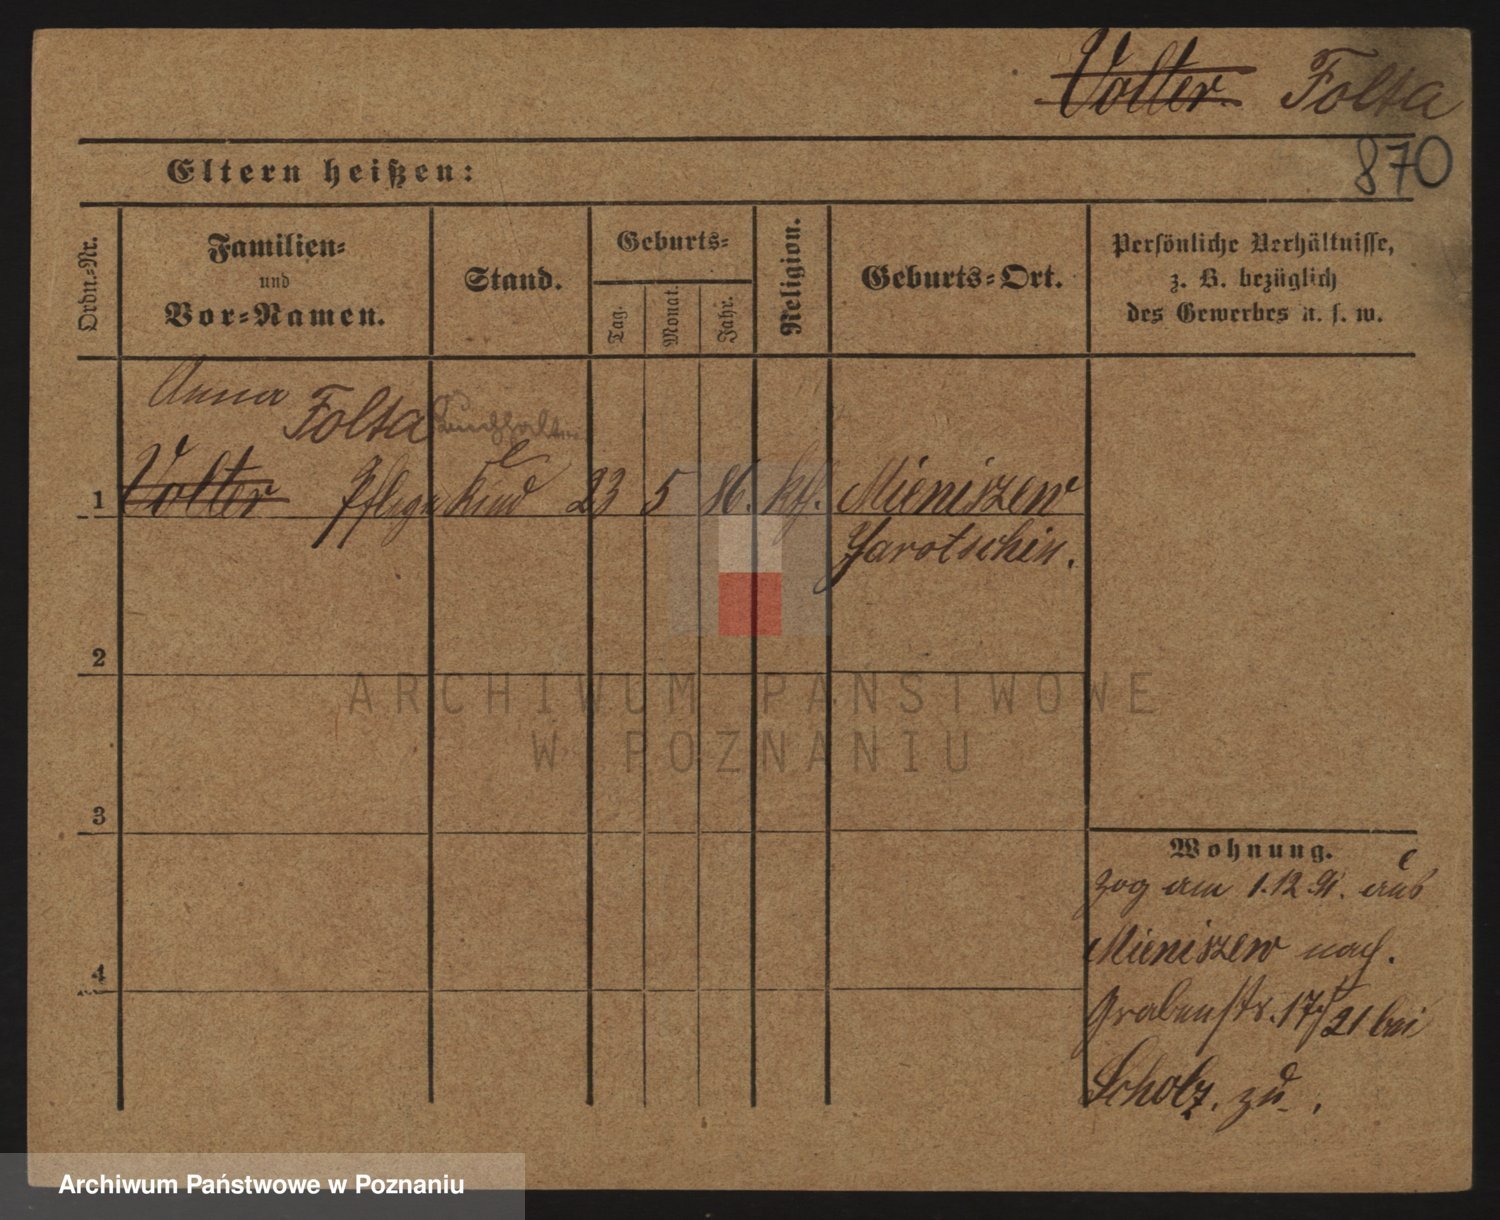 Volter Folta
870
Eltern heißen:
Ordn.-Nr.
Familien-
und
Vor-Namen.
Stand.
Geburts-
Tag.
Monat.
Jahr.
Religion.
Geburts-Ort.
Persönliche Verhältnisse,
z. B. bezüglich
des Gewerbes u. s. w.
Anna
Folta Buchhalterin
1 Volter Pflegekind 23 5 86. kth. Mieniszew
Jarotschin.
2
3
4
Wohnung.
zog am 1.12.91. aus
Mieniszew nach
Grabenstr. 17/21 bei
Scholz. zu.
ARCHIWUM PAŃSTWOWE
W POZNANIU
Archiwum Państwowe w Poznaniu